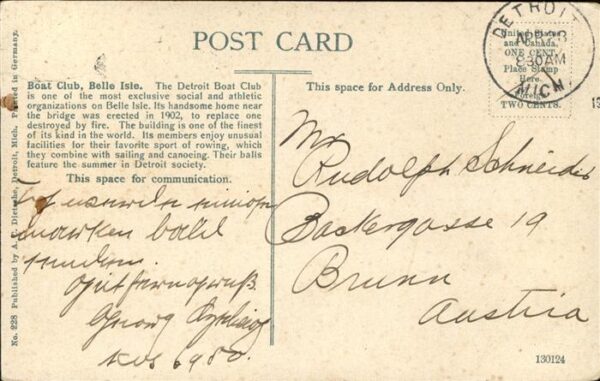 POST CARD
Boat Club, Belle Isle. The Detroit Boat Club
is one of the most exclusive social and athletic
organizations on Belle Isle. Its handsome home near
the bridge was erected in 1902, to replace one
destroyed by fire. The building is one of the finest
of its kind in the world. Its members enjoy unusual
facilities for their favorite sport of rowing, which
they combine with sailing and canoeing. Their balls
feature the summer in Detroit society.
This space for communication.
marken bald
senden.
Georg
6980.
No. 228 Published by A. C. Dietsche, Detroit, Mich. Printed in Germany.
This space for Address Only.
DETROIT
MICH
830AM
United States
and Canada,
ONE CENT
Place Stamp
Here
Foreign
TWO CENTS.
Mr
Rudolph Schneider
Backergasse 19
Brunn
Austria
130124